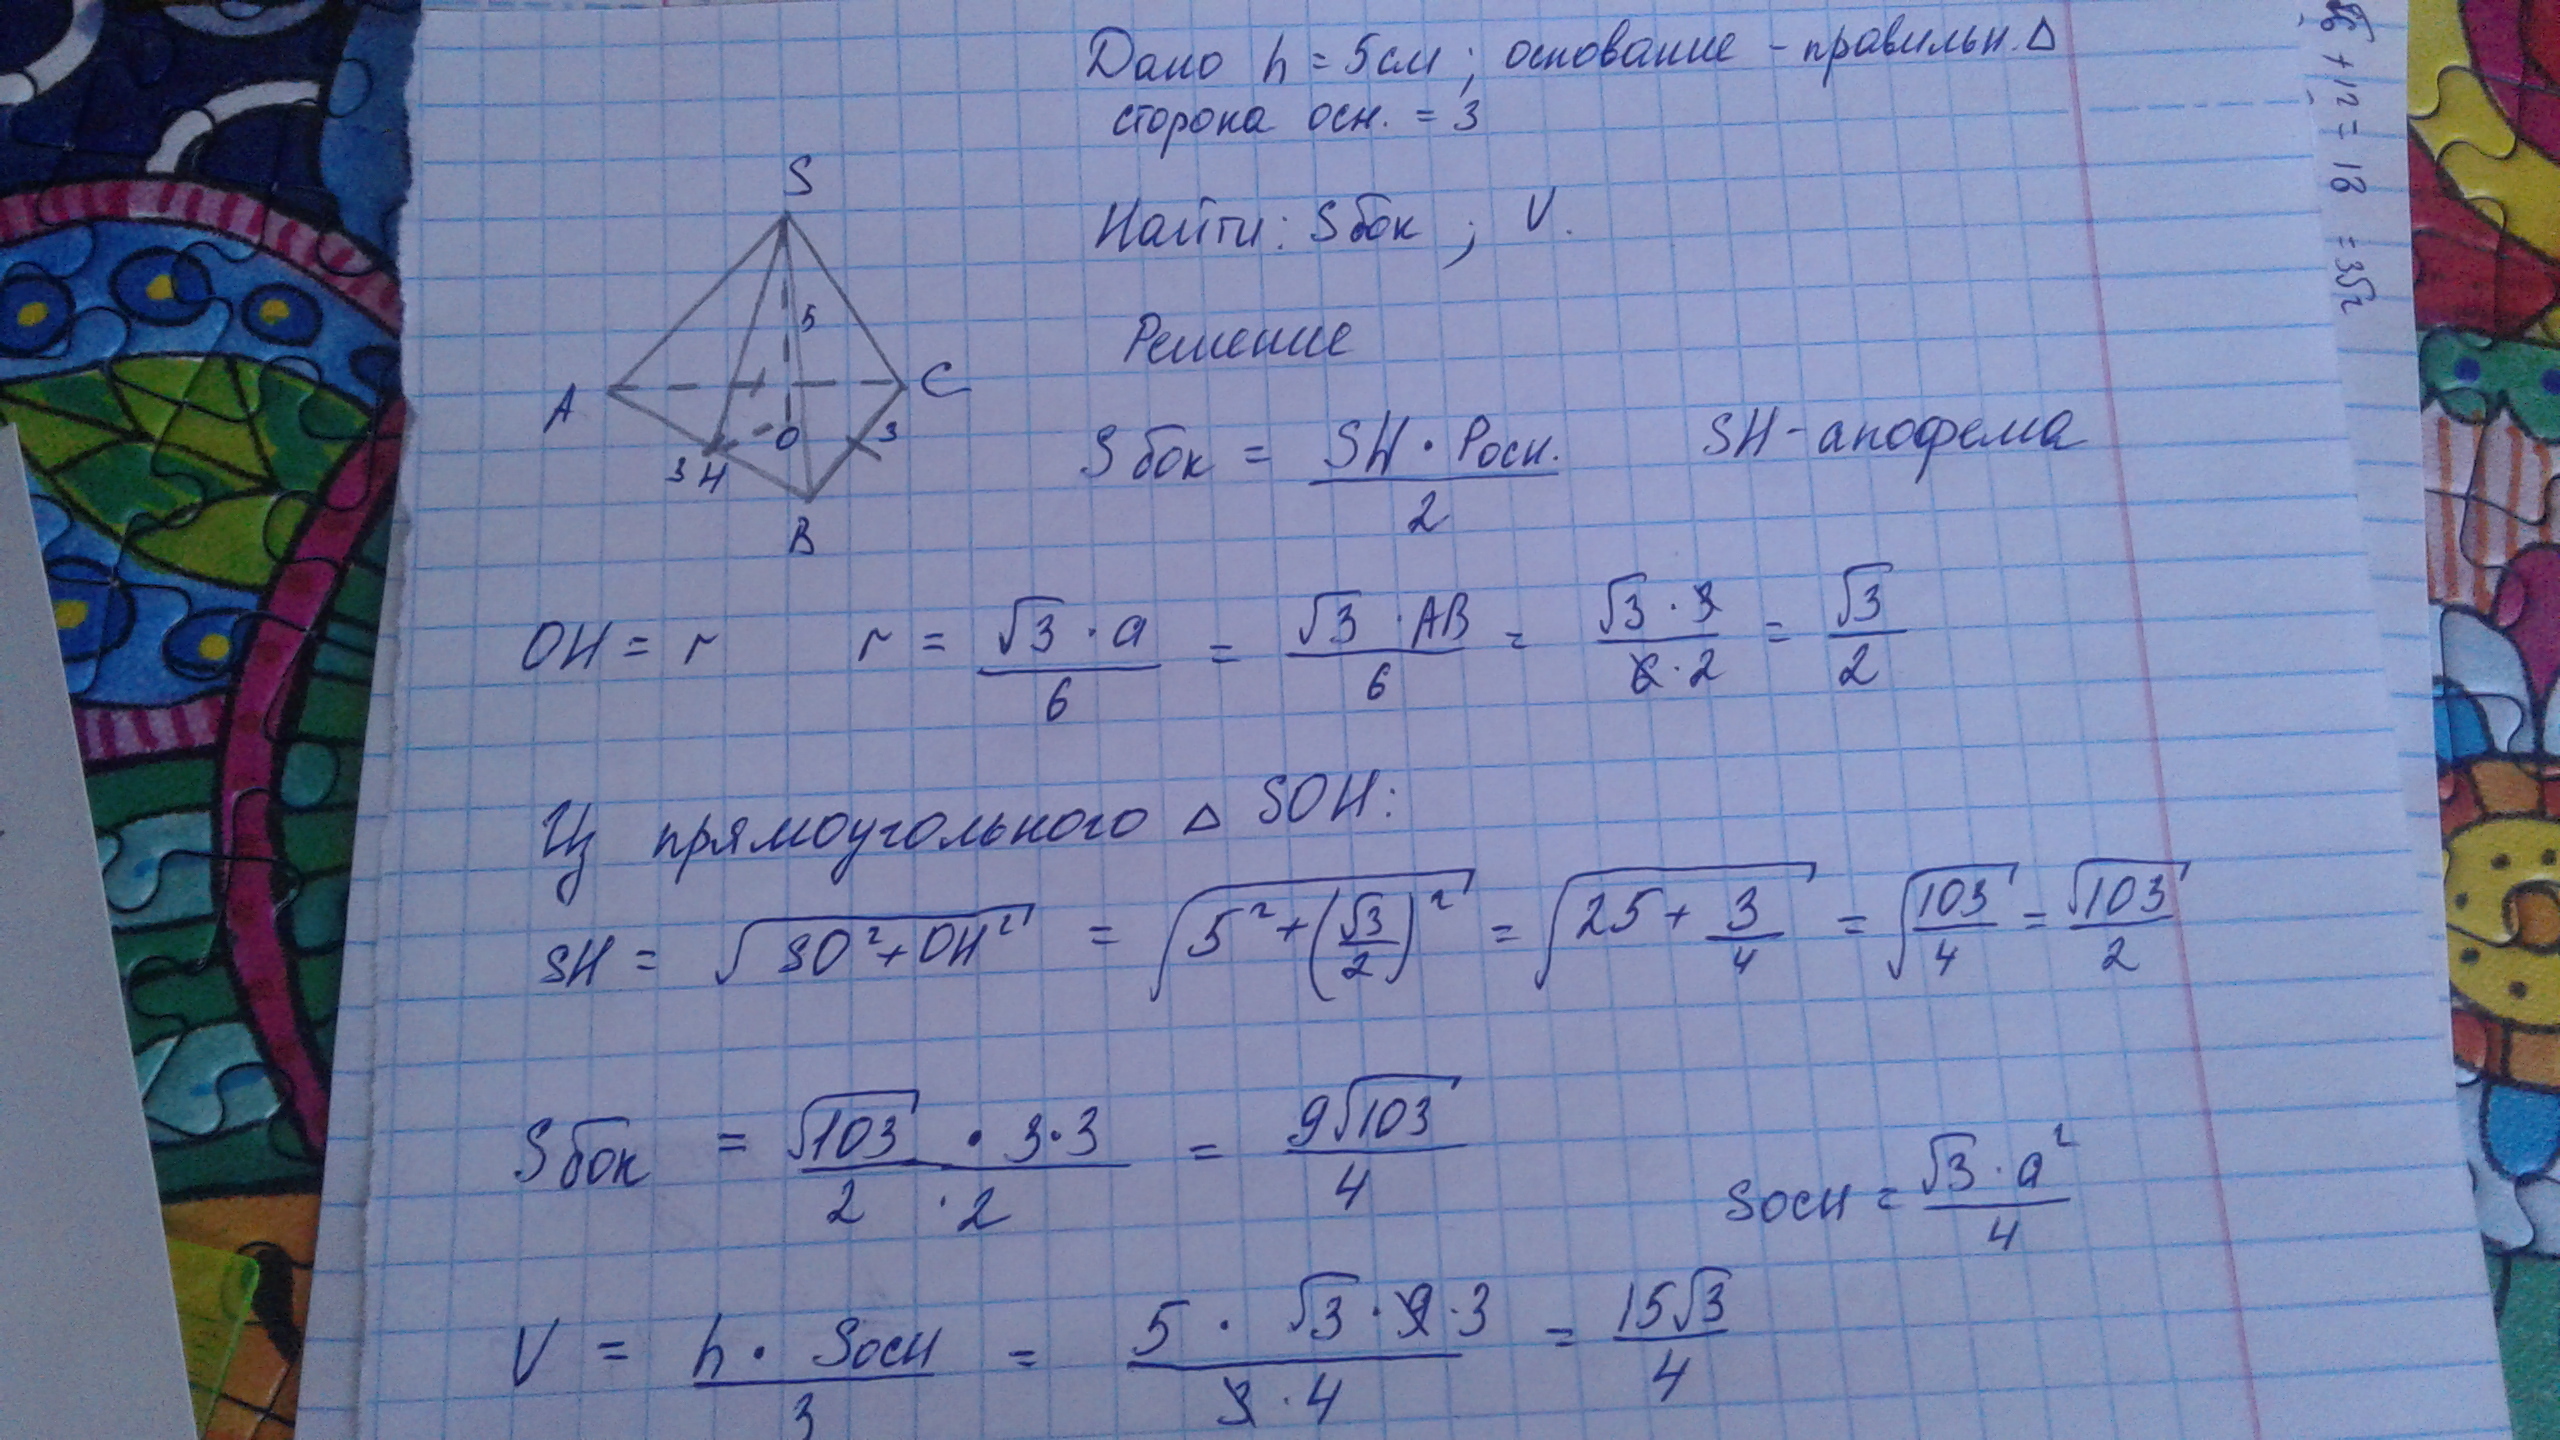 Дано h = 5см ; основание - правильн. Δ
сторона осн. = 3
Найти: Sбок ; V.
Решение
S
5
A
C
O
3
3 H
B
Sбок = SH · Pосн. / 2    SH - апофема
OH = r    r = √3 · a / 6 = √3 · AB / 6 = √3 · 3 / 6 · 2 = √3 / 2
Из прямоугольного Δ SOH:
SH = √(SO² + OH²) = √(5² + (√3/2)²) = √(25 + 3/4) = √(103/4) = √103 / 2
Sбок = √103 · 3·3 / 2 · 2 = 9√103 / 4
Sосн = √3 · a² / 4
V = h · Sосн / 3 = 5 · √3 · 9 · 3 / 3 · 4 = 15√3 / 4
+12 = 18